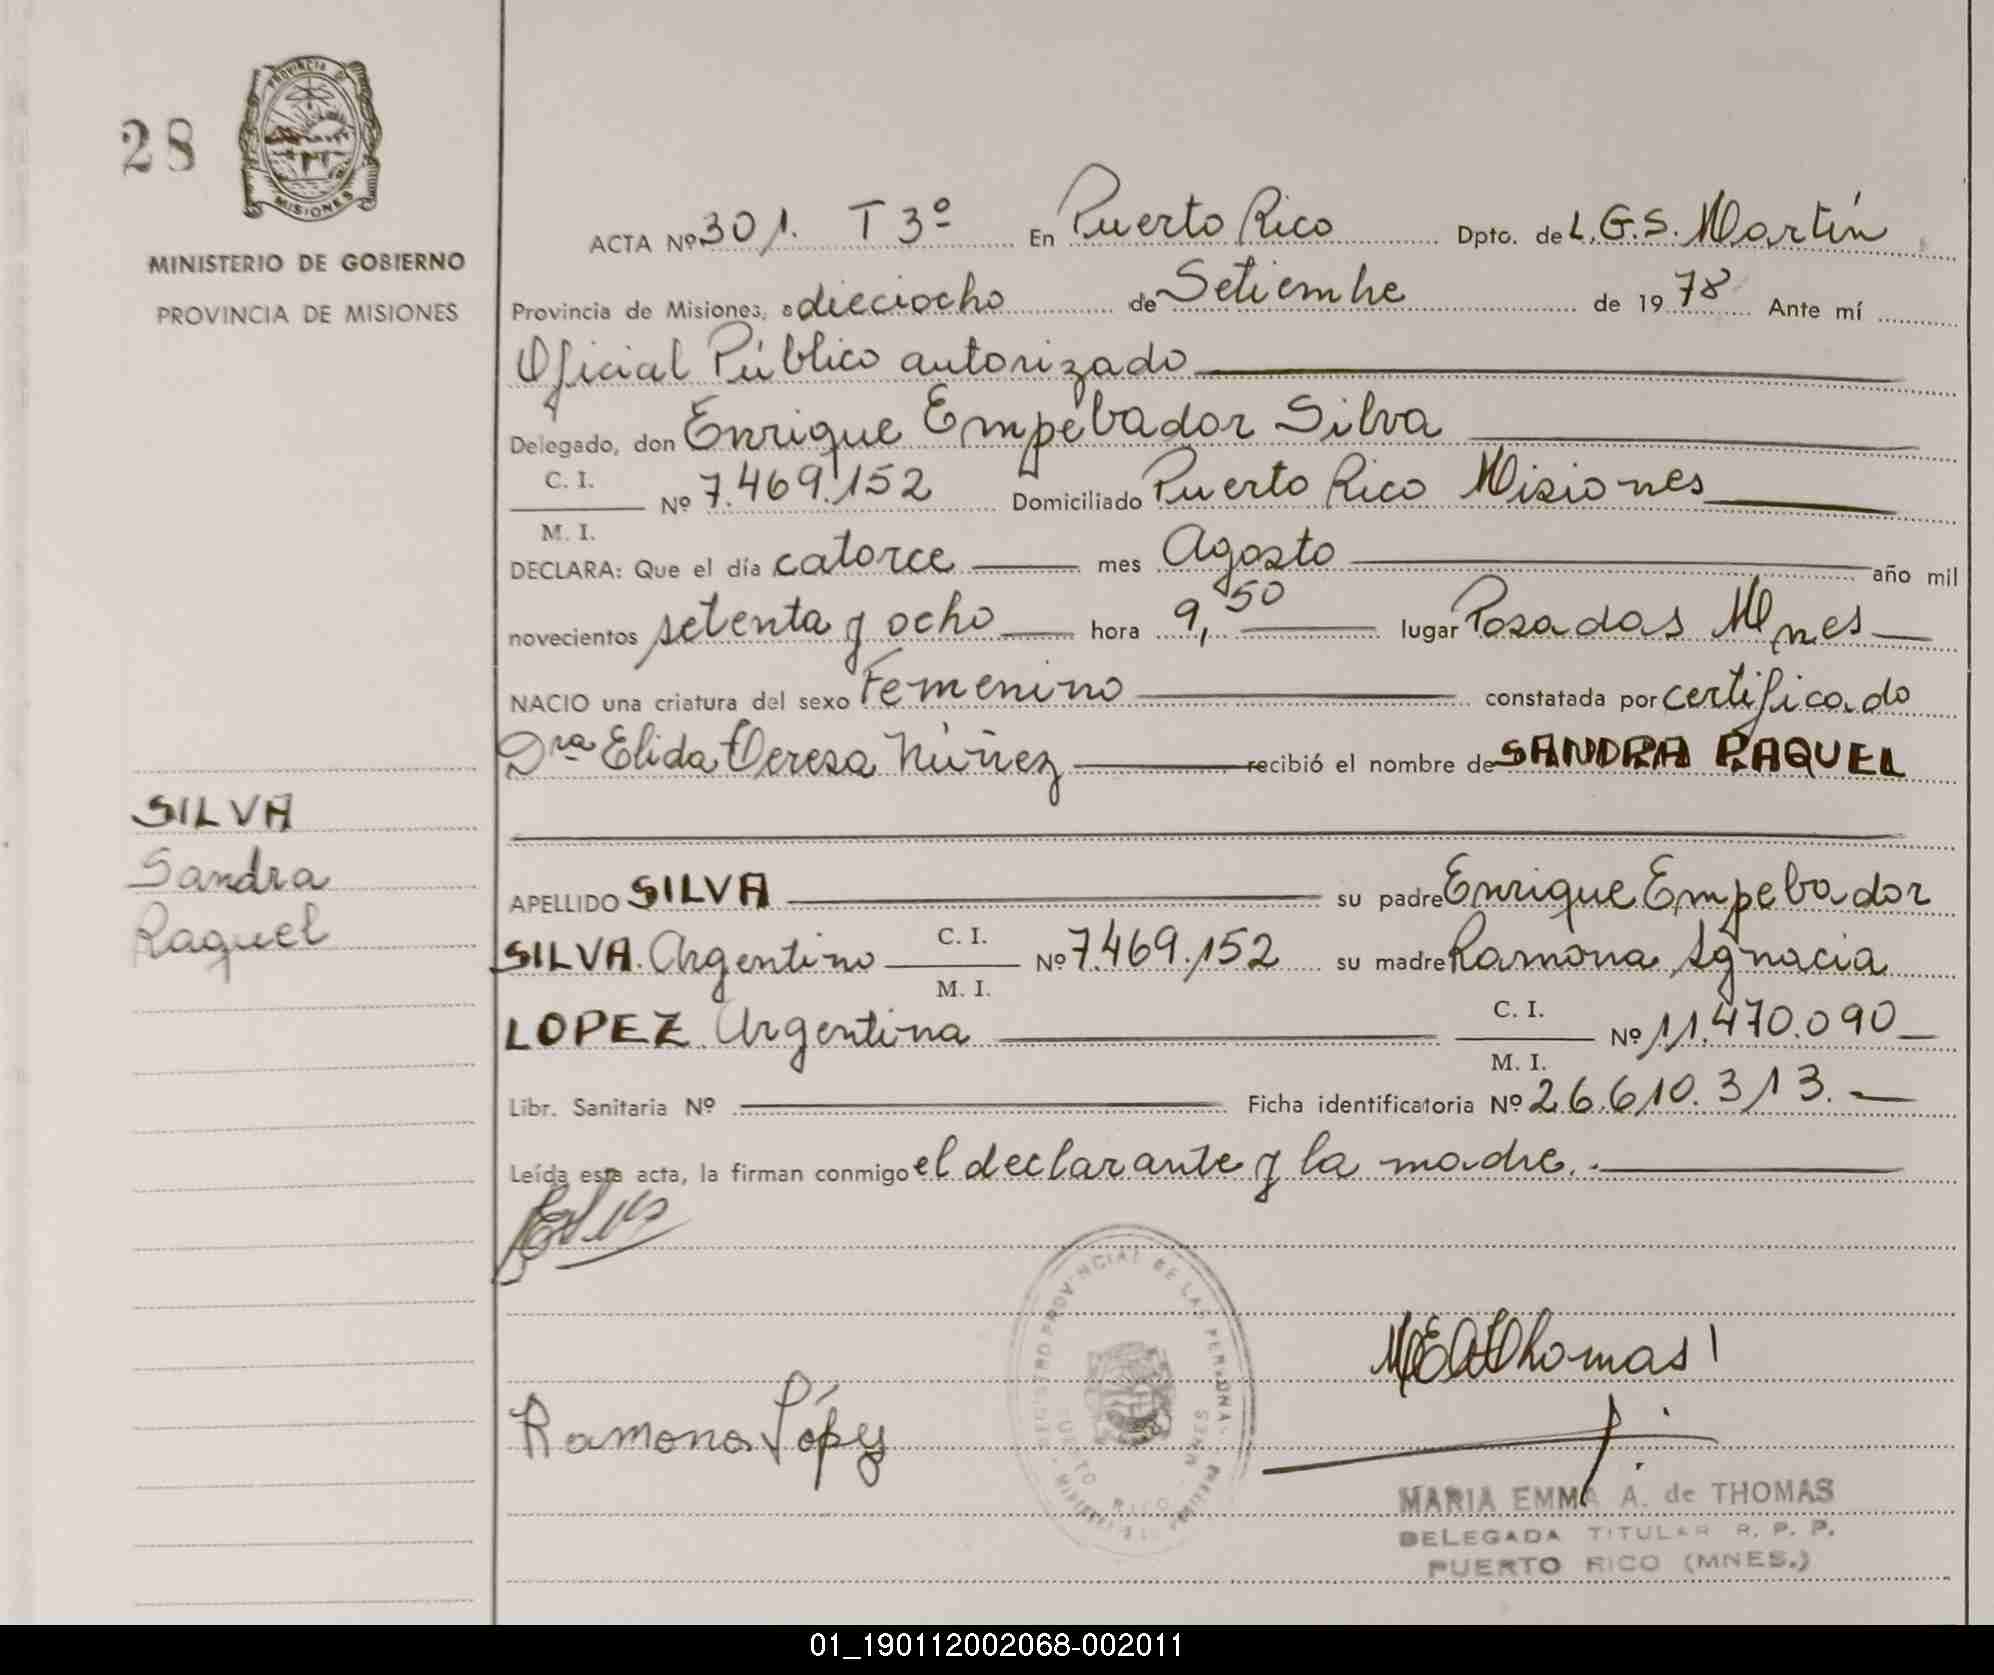 28
PROVINCIA DE
MISIONES
MINISTERIO DE GOBIERNO
PROVINCIA DE MISIONES
SILVA
Sandra
Raquel
ACTA Nº 301. T 3º En Puerto Rico Dpto. de L.G.S. Martín
Provincia de Misiones, a dieciocho de Setiembre de 1978 Ante mí
Oficial Público autorizado
Delegado, don Enrique Empebador Silva
C. I.
Nº 7.469.152 Domiciliado Puerto Rico Misiones
M. I.
DECLARA: Que el día catorce mes Agosto año mil
novecientos setenta y ocho hora 9,50 lugar Posadas Mnes
NACIO una criatura del sexo Femenino constatada por certificado
Dra Elida Teresa Núñez recibió el nombre de SANDRA RAQUEL
APELLIDO SILVA su padre Enrique Empebador
SILVA. Argentino C. I. Nº 7.469.152 su madre Ramona Ignacia
M. I.
LOPEZ. Argentina C. I. Nº 11.470.090
M. I.
Libr. Sanitaria Nº Ficha identificatoria Nº 26.610.313.
Leída esta acta, la firman conmigo el declarante y la madre.
REGISTRO PROVINCIAL DE LAS PERSONAS
PUERTO RICO MNES
MEAThomas
Ramona López
MARIA EMMA A. de THOMAS
DELEGADA TITULAR R. P. P.
PUERTO RICO (MNES.)
01_190112002068-002011